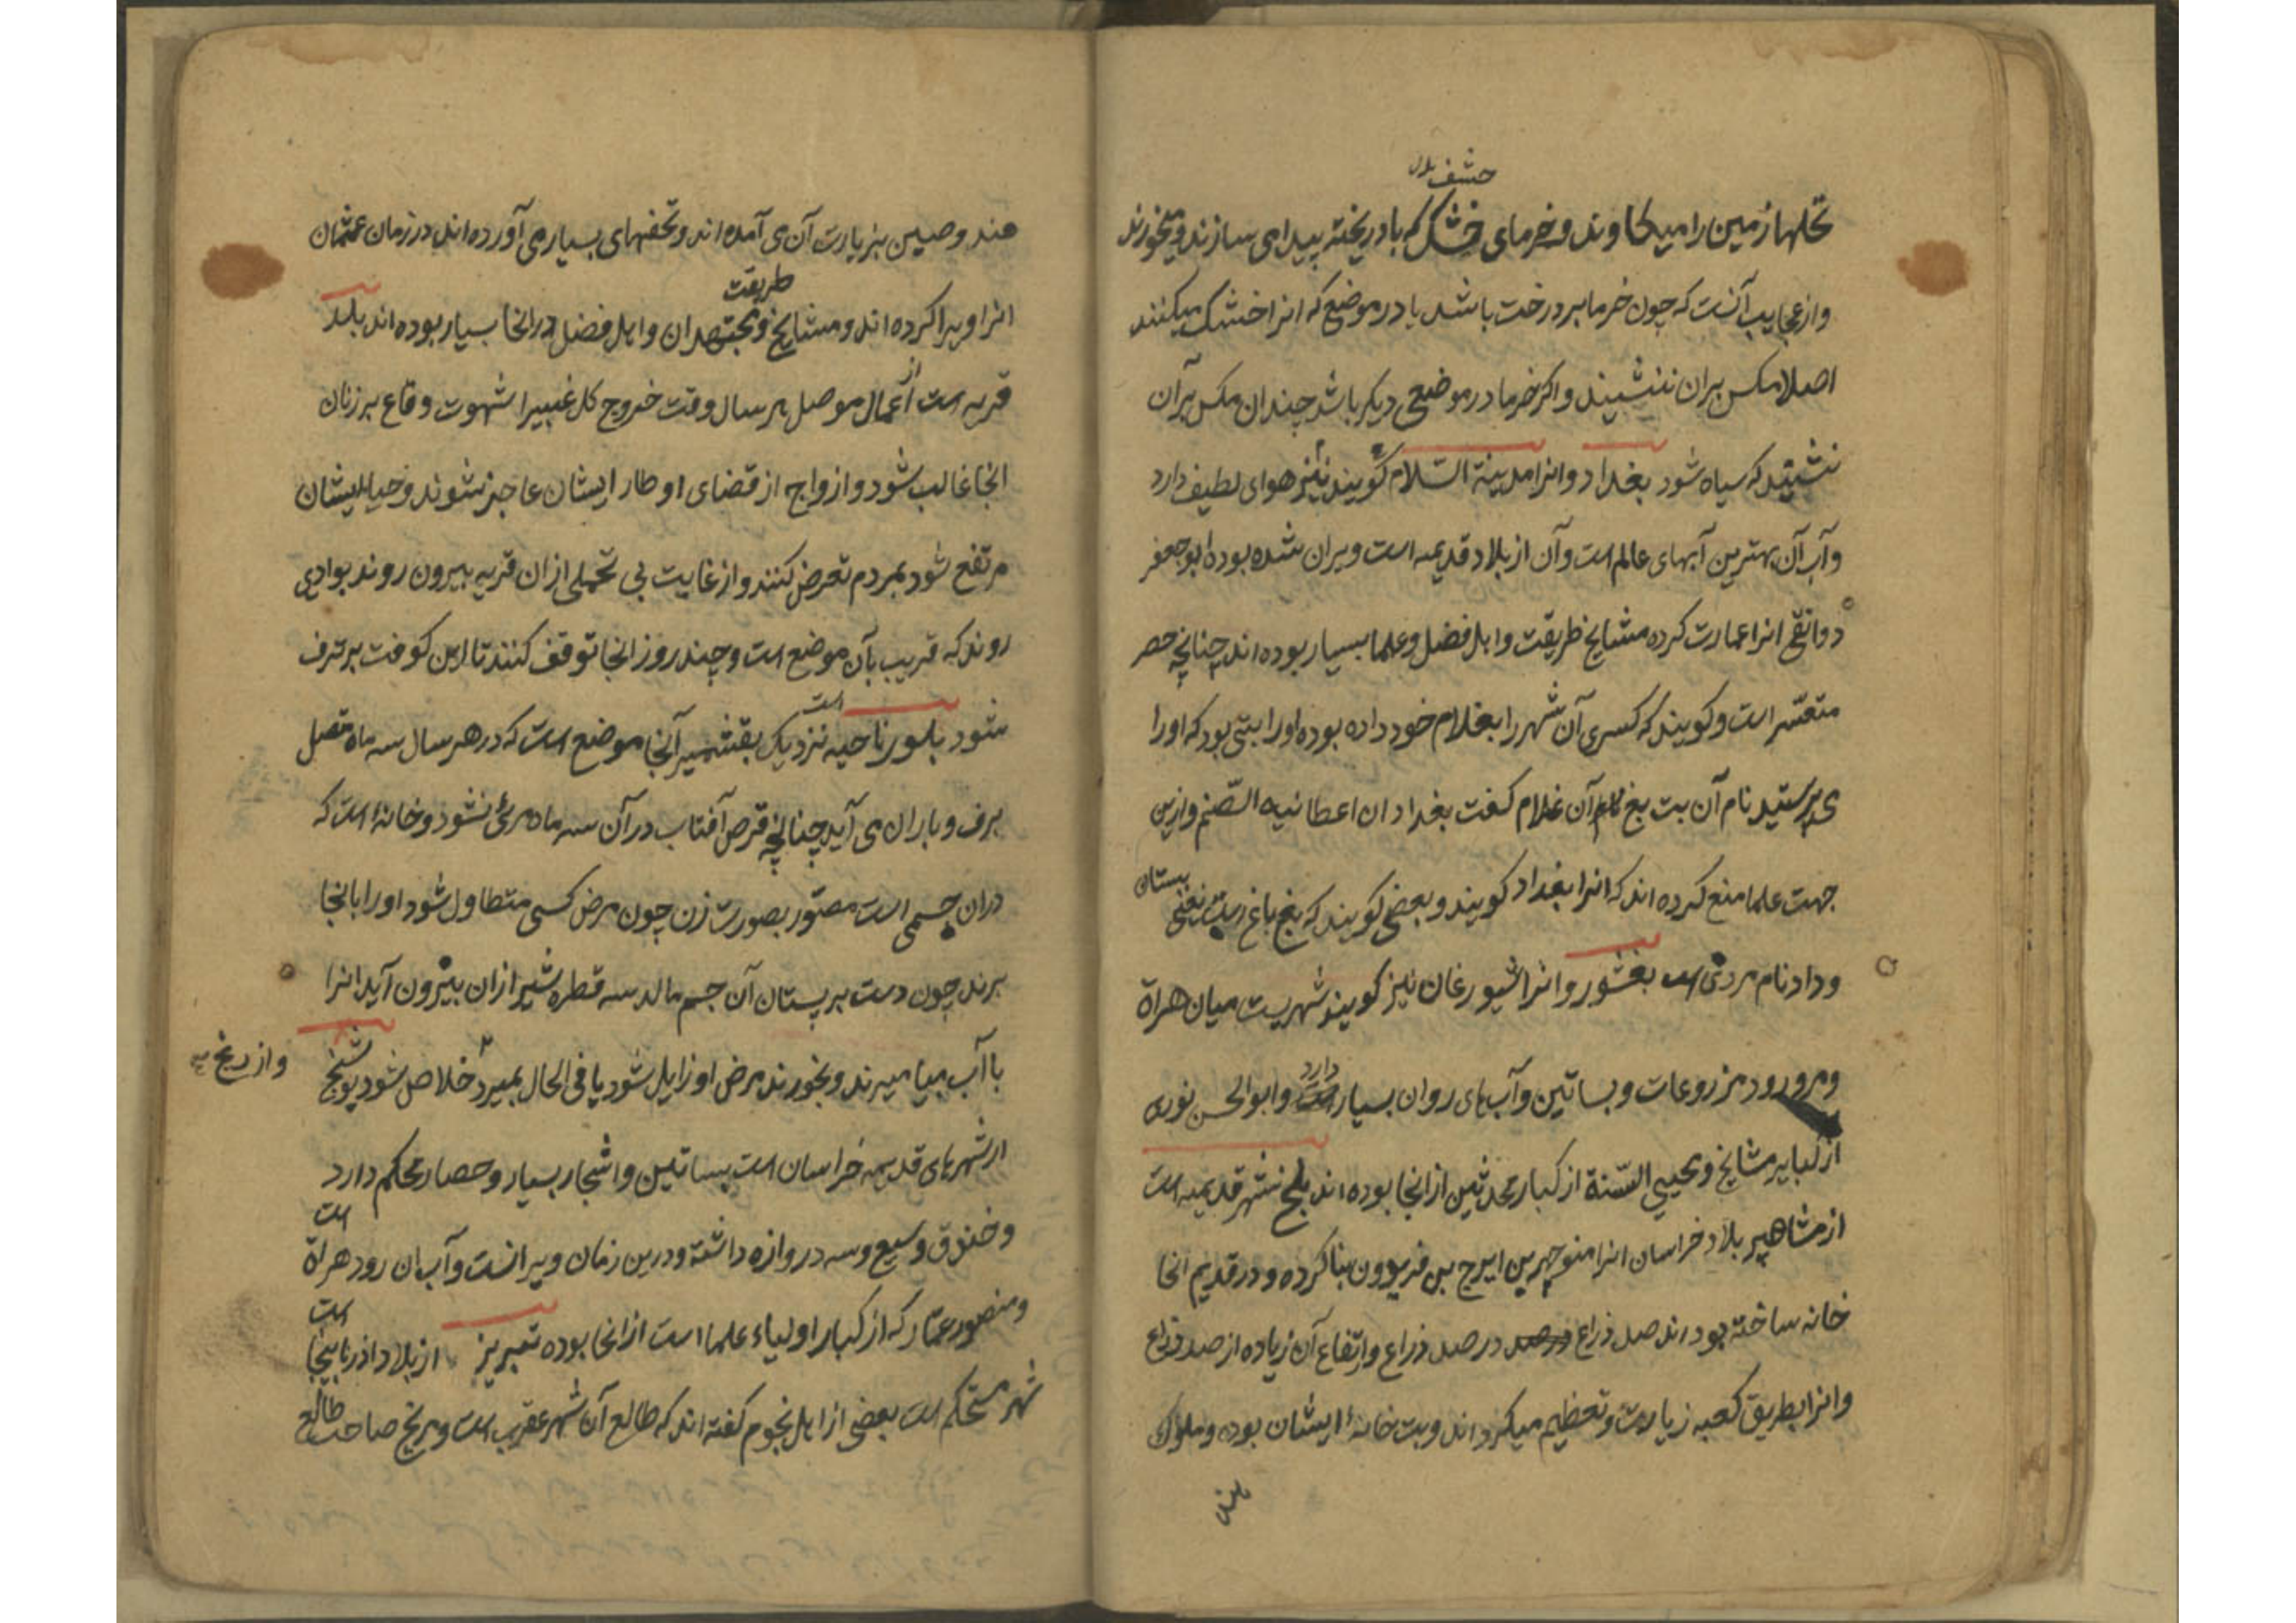 حشف
نخلها زمین را میکاوند و خرمای خشک که باد ریخته پیدا می سازند و میخورند
و از عجایب آنست که چون خرما بر درخت باشد یا در موضع که انرا خشک میکنند
اصلا مکس بران ننشیند و اکر خرما در موضعی دیکر باشد چندان مکس برآن
نشیند که سیاه شود بغداد و انرا مدینة السّلام کویند نیز هوای لطیف دارد
و آب آن بهترین آبهای عالم است و آن از بلاد قدیمه است ویران شده بوده ابو جعفر
دوانقی انرا عمارت کرده مشایخ طریقت و اهل فضل و علما بسیار بوده اند چنانچه حصر
متعسّر است و کویند که کسری آن شهر را بغلام خود داده بوده او را بتی بود که او را
می پرستید نام آن بت بغ آن غلام کفت بغداد ان اعطانیه الصّنم و ازین
جهت علما منع کرده اند که انرا بغداد کویند و بعضی کویند که بغ باغ است یعنی بستان
و داد نام مردی است بغشور و انرا شیورغان نیز کویند شهریست میان هراة
و مرورود مزروعات و بساتین و آب های روان بسیار دارد و ابو الحسن نوری
از کبایر مشایخ و محیی السّنة از کبار محدثین از انجا بوده اند بلخ شهر قدیمه است
از مشاهیر بلاد خراسان انرا منوچهر بن ایرج بن فریدون بنا کرده و در قدیم انجا
خانه ساخته بوده اند صد ذراع در صد ذراع و ارتفاع آن زیاده از صد ذراع
و انرا بطریق کعبه زیارت و تعظیم میکرده اند و بت خانهٔ ایشان بوده و ملوک
هند
هند و صین بزیارت آن می آمده اند و تحفهای بسیار می آورده اند در زمان عثمان
طریقت
انرا ویرا کرده اند و مشایخ و مجتهدان و اهل فضل در انجا بسیار بوده اند بلد
قریه است از اعمال موصل هر سال وقت خروج کل غبیرا شهوت وقاع بر زنان
انجا غالب شود و ازواج از قضای اوطار ایشان عاجز شوند و حیا از ایشان
مرتفع شود بمردم تعرض کنند و از غایت بی تحملی ازان قریه بیرون روند بوادی
روند که قریب بآن موضع است و چند روز انجا توقف کنند تا این کوفت برطرف
شود بلور ناحیه است نزدیک بقشمیر آنجا موضع است که در هر سال سه ماه متصل
برف و باران می آید چنانچه قرص آفتاب در آن سه ماه مرئی نشود و خانهٔ است که
دران جسمی است مصوّر بصورت زن چون مرض کسی متطاول شود او را بانجا
برند چون دست بر پستان آن جسم مالد سه قطره شیر ازان بیرون آید انرا
با آب می آمیزند و بخورند مرض او زایل شود یا فی الحال بمیرد خلاص شود پوشنج
و از رنج
از شهرهای قدیمه خراسان است بساتین و اشجار بسیار و حصار محکم دارد
و خندق وسیع و سه دروازه داشته و درین زمان ویرانست و آب ان رود هراة است
و منصور عمّار که از کبار اولیاء علما است از انجا بوده تبریز از بلاد اذربایجان است
شهر مستحکم است بعضی از اهل نجوم کفته اند که طالع آن شهر عقرب است و مریخ صاحب طالع